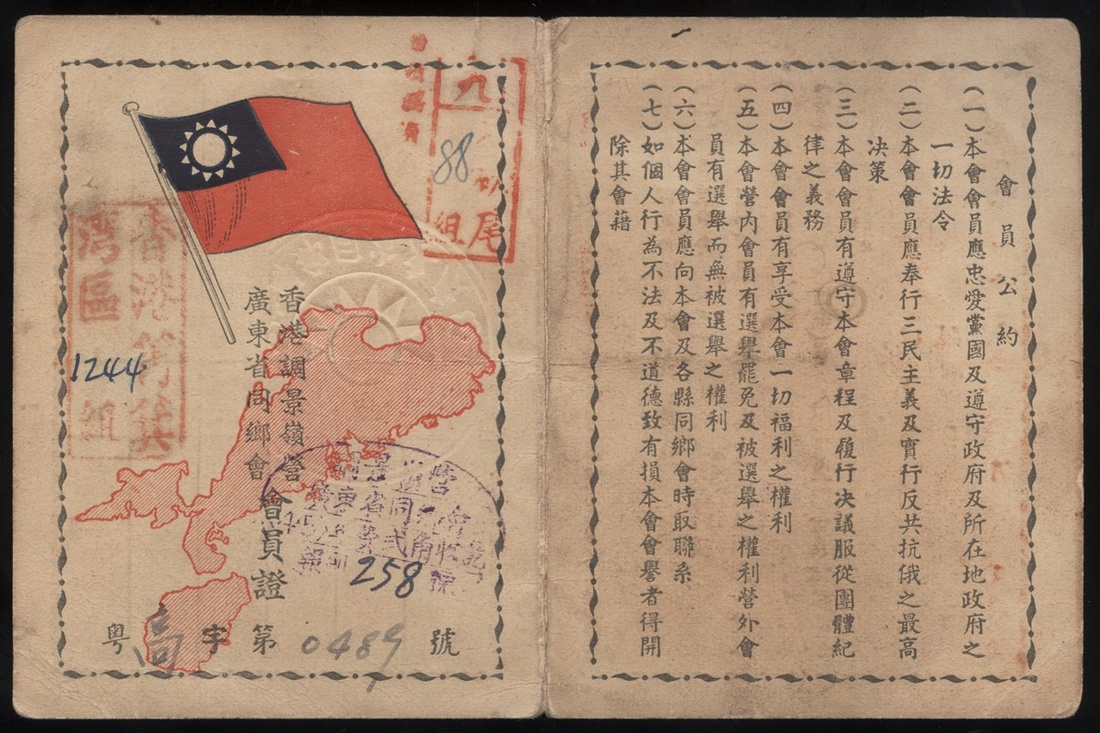 會員公約
（一）本會會員應忠愛黨國及遵守政府及所在地政府之
一切法令
（二）本會會員應奉行三民主義及實行反共抗俄之最高
決策
（三）本會會員有遵守本會章程及履行決議服從團體紀
律之義務
（四）本會會員有享受本會一切福利之權利
（五）本會營內會員有選舉罷免及被選舉之權利營外會
員有選舉而無被選舉之權利
（六）本會會員應向本會及各縣同鄉會時取聯系
（七）如個人行為不法及不道德致有損本會會譽者得開
除其會藉
香港調景嶺營
廣東省同鄉會
會員證
粤高字第0489號
88
尾
組
香港
灣區
組
1244
258